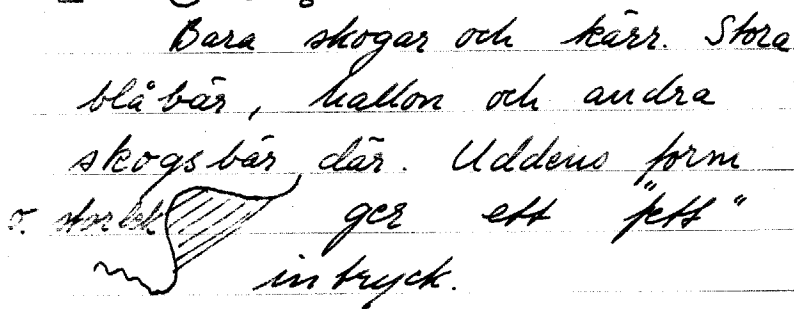 Bara skogar och kärr. Stora
blåbär, hallon och andra
skogsbär där. Uddens form
o. storlek ger ett "jett"
intryck.